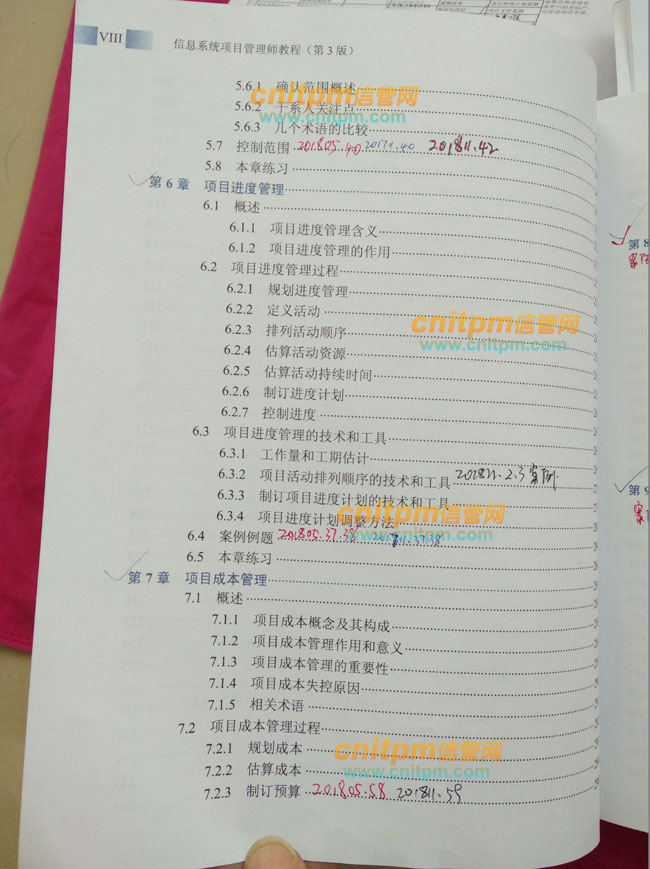 VIII 信息系统项目管理师教程（第3版）
5.6.1 确认范围概述
cnitpm信管网
5.6.2 干系人关注点
www.cnitpm.com
5.6.3 几个术语的比较
5.7 控制范围 201805.40 201711.40 201811.42
5.8 本章练习
第6章 项目进度管理
6.1 概述
6.1.1 项目进度管理含义
6.1.2 项目进度管理的作用
第8
6.2 项目进度管理过程
6.2.1 规划进度管理
6.2.2 定义活动
6.2.3 排列活动顺序
cnitpm信管网
www.cnitpm.com
6.2.4 估算活动资源
6.2.5 估算活动持续时间
6.2.6 制订进度计划
6.2.7 控制进度
6.3 项目进度管理的技术和工具
6.3.1 工作量和工期估计
6.3.2 项目活动排列顺序的技术和工具 201811.2.3案例
第9
6.3.3 制订项目进度计划的技术和工具
6.3.4 项目进度计划调整方法
cnitpm信管网
www.cnitpm.com
6.4 案例例题 201805.37.38
6.5 本章练习
第7章 项目成本管理
7.1 概述
7.1.1 项目成本概念及其构成
7.1.2 项目成本管理作用和意义
7.1.3 项目成本管理的重要性
7.1.4 项目成本失控原因
7.1.5 相关术语
7.2 项目成本管理过程
7.2.1 规划成本
cnitpm信管网
www.cnitpm.com
7.2.2 估算成本
7.2.3 制订预算 201805.58 201811.59